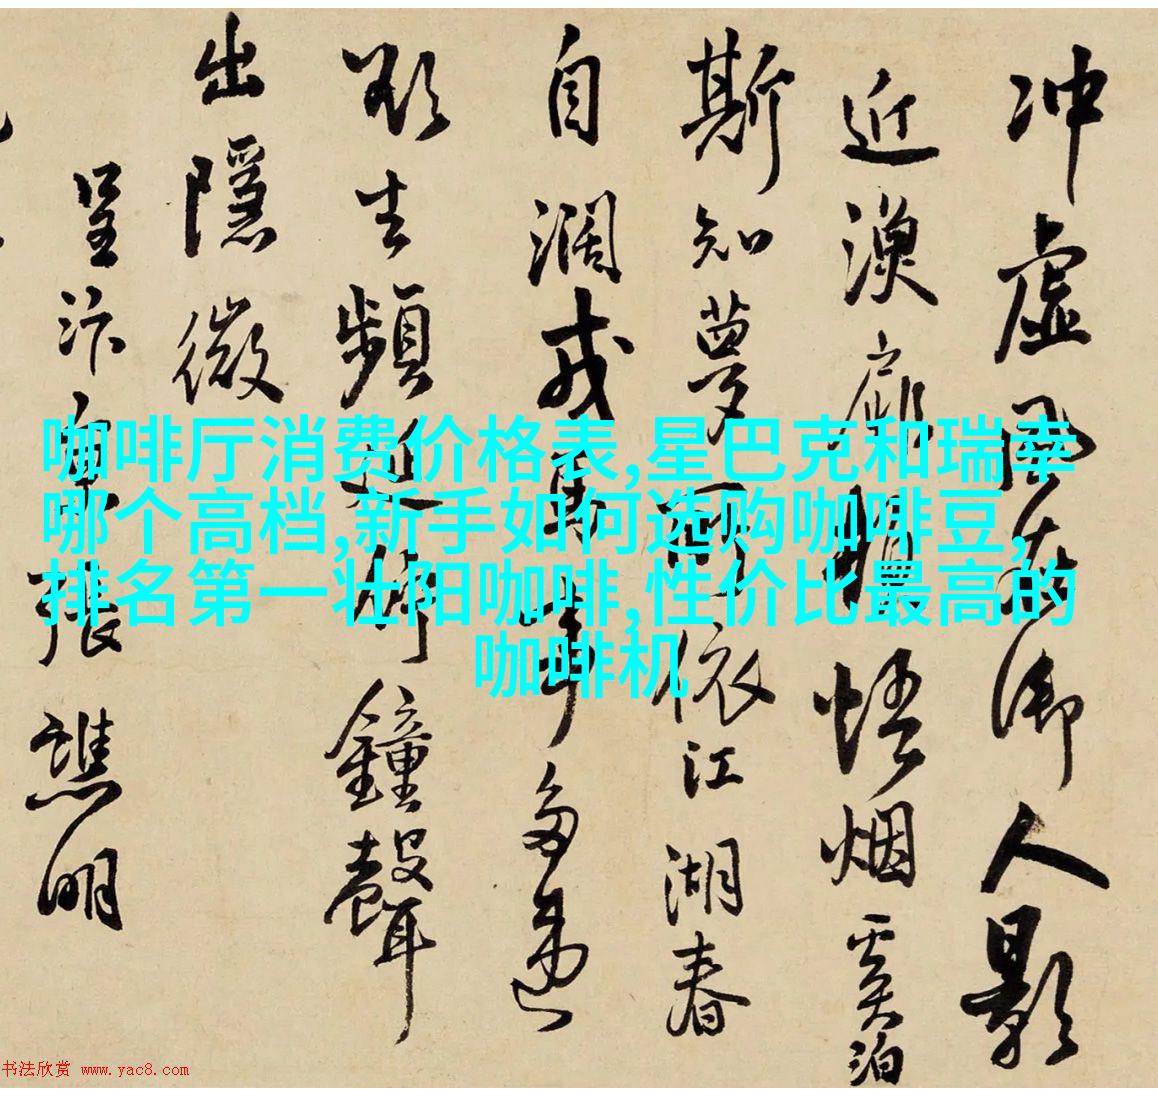 冲虚风在御人影
近渔扉
悟烟
泊
斯知梦
依江湖春
自阔戎马
多
歇生频近
钟声
出隐微
呈汴泉
张谯明
咖啡厅消费价格表,星巴克和瑞幸
哪个高档,新手如何选购咖啡豆,
排名第一壮阳咖啡,性价比最高的
咖啡机
书法欣赏 www.yac8.com